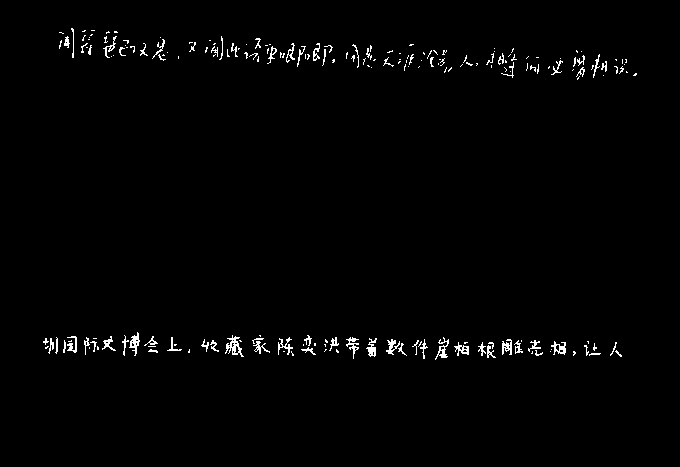 闻琵琶已叹息，又闻此语重唧唧。同是天涯沦落人，相逢何必曾相识。
圳国际文博会上，收藏家陈奕洪带着数件崖柏根雕亮相，让人